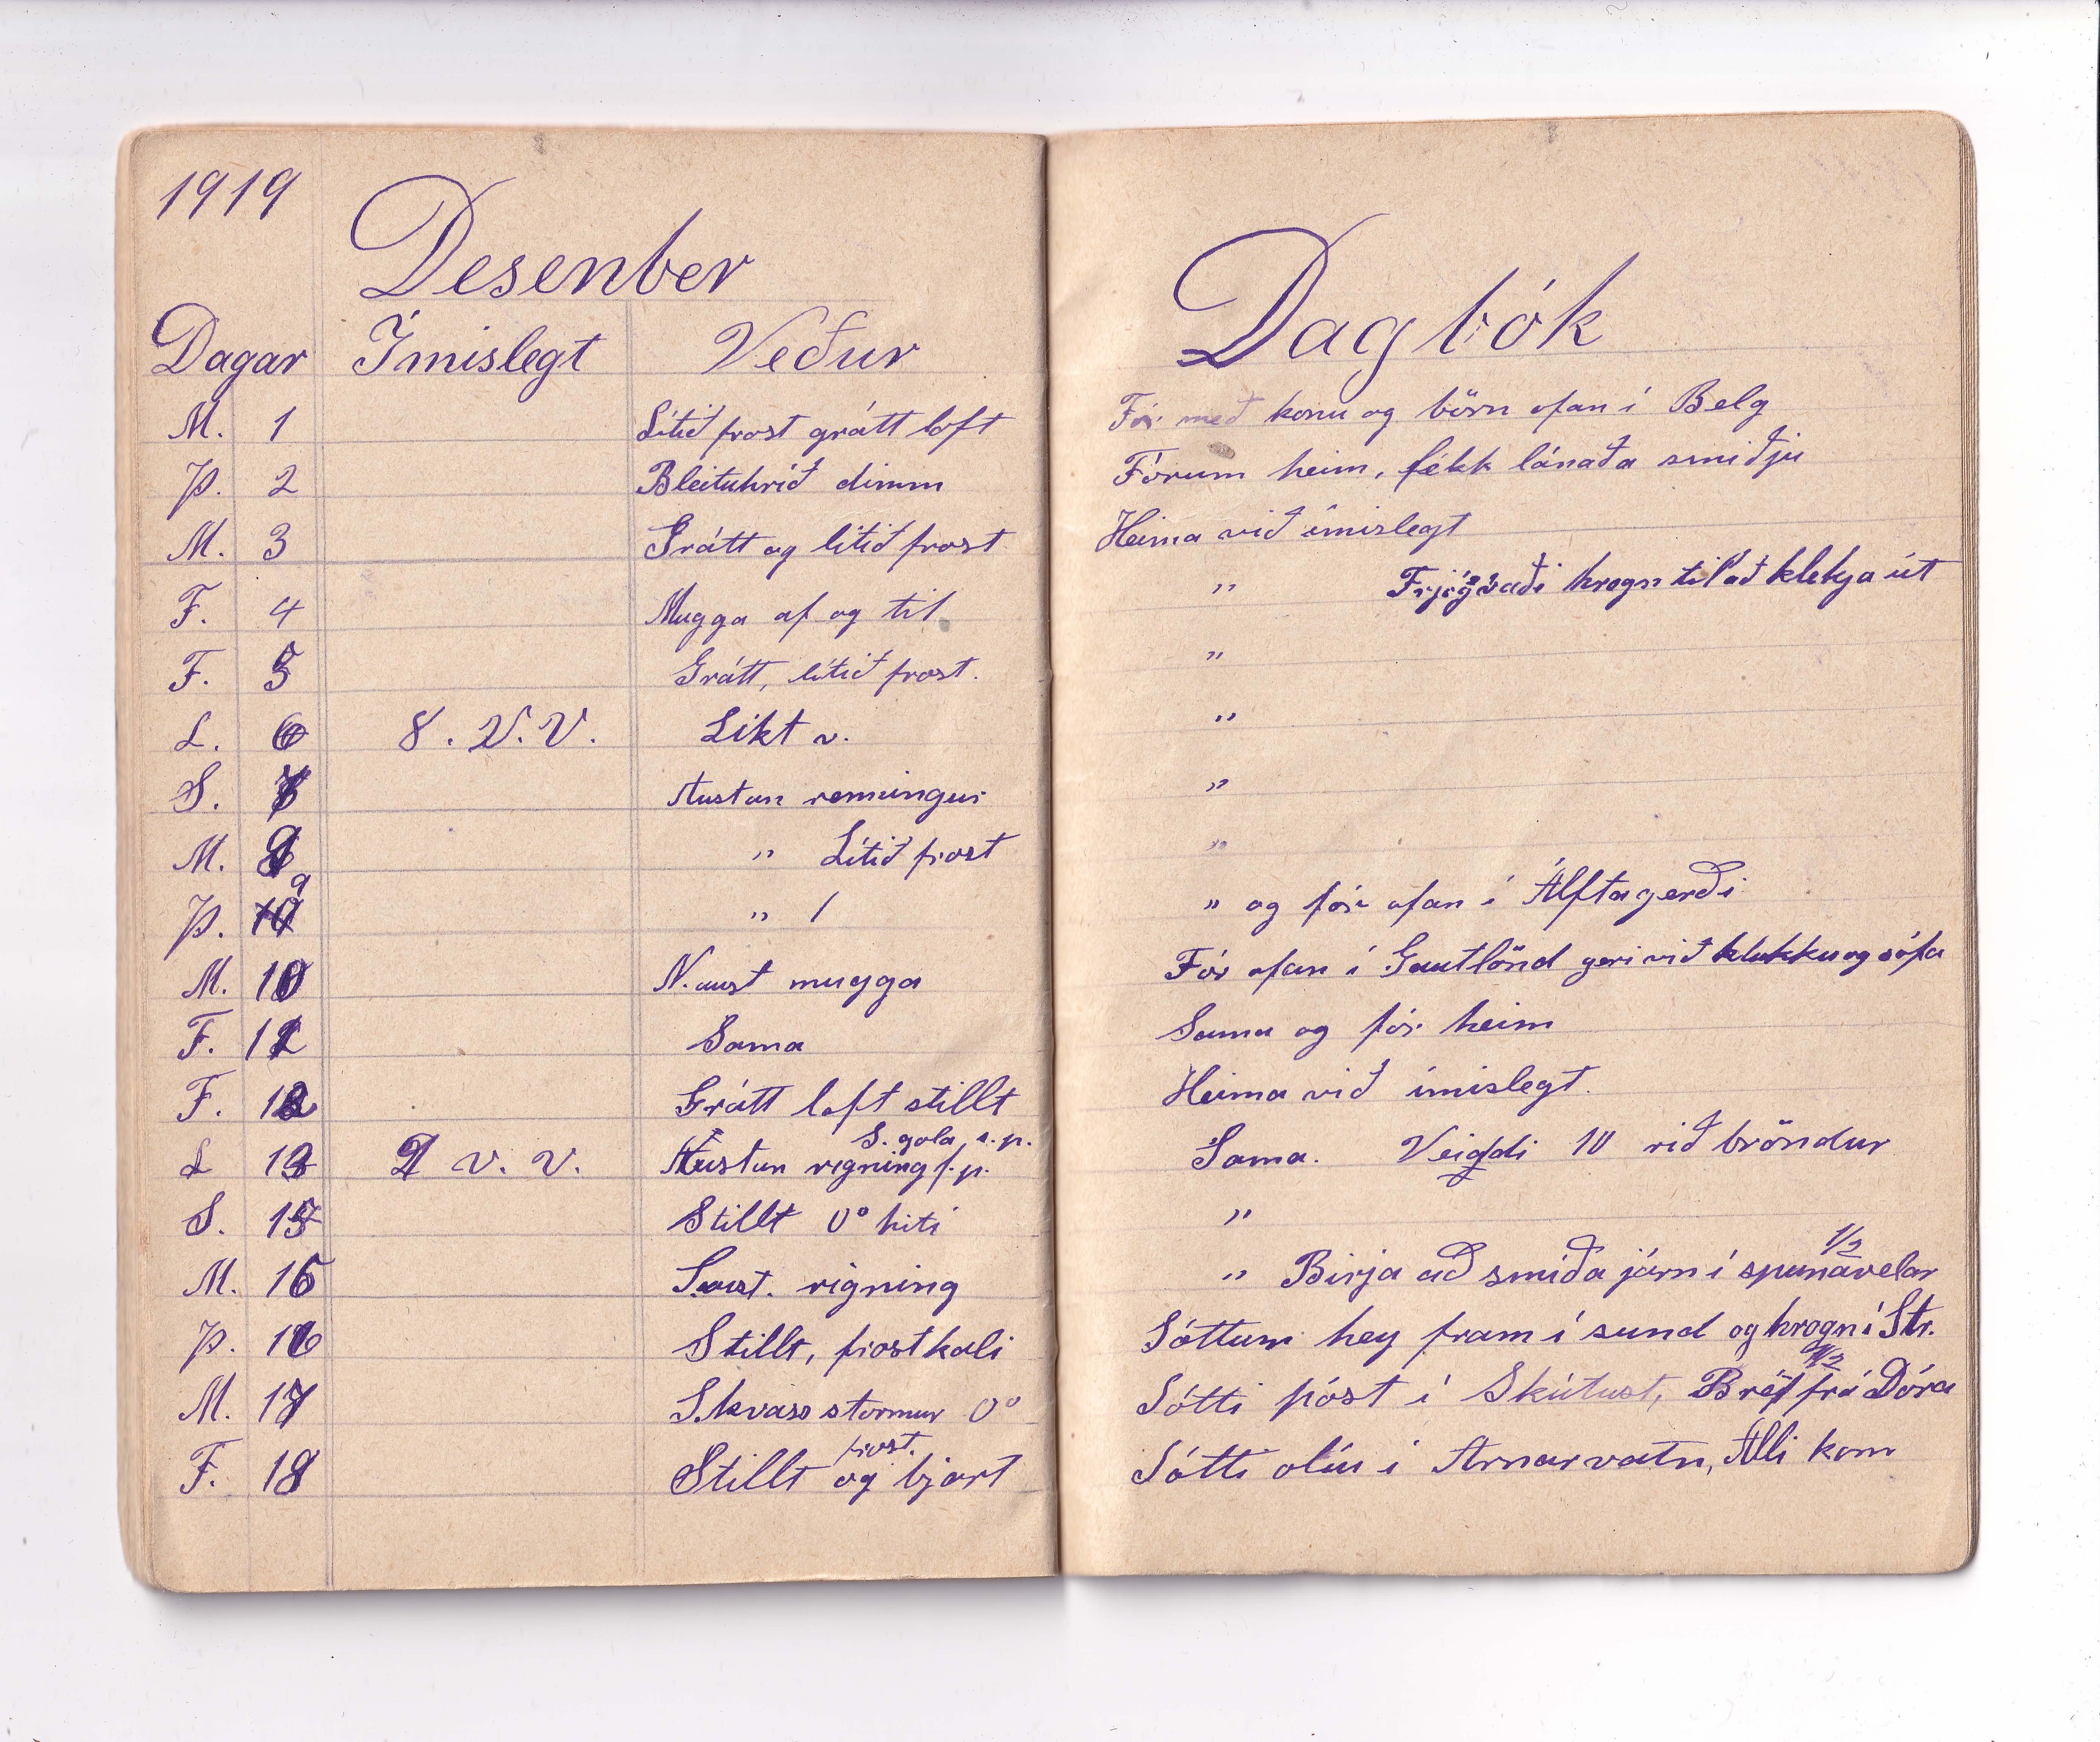 1919
Desenber
Dagar Ímislegt Veður
M. 1 Lítið frost grátt loft
Þ. 2 Bleituhríð dimm
M. 3 Grátt og lítið frost
F. 4 Mugga af og til
F. 5 Grátt, lítið frost.
L. 6 8. V. V. Líkt v.
S. 7 Austan renningur
M. 8 " Lítið frost
Þ. 9 "
M. 10 N. aust mugga
F. 11 Sama
F. 12 Grátt loft stillt
S. gola s. p.
L 13 v. v. Austan rigning f. p.
S. Stillt 0° hiti
M. 15 S. aust. rigning
Þ. 16 Stillt, frostkali
M. 17 S. hvass stormur 0°
frost.
F. 18 Stillt og bjart
Dagbók
Fór með konu og börn ofan í Belg
Fórum heim, fékk lánaða smiðju
Heima við ímislegt
" Frjógvaði hrogn til að klekja út
"
"
"
"
" og fór ofan í Álftagerði
Fór ofan í Gautlönd geri við klukku og sófa
Sama og fór heim
Heima við ímislegt.
Sama. Veiddi 10 rið bröndur
"
1/2
" Birja að smíða járn í spunavelar
Sóttum hey fram í sund og hrogn í Str.
1/2
Sótti póst í Skútust, Bréf frá Dóra
Sótti olíu í Arnarvatn, Alli kom